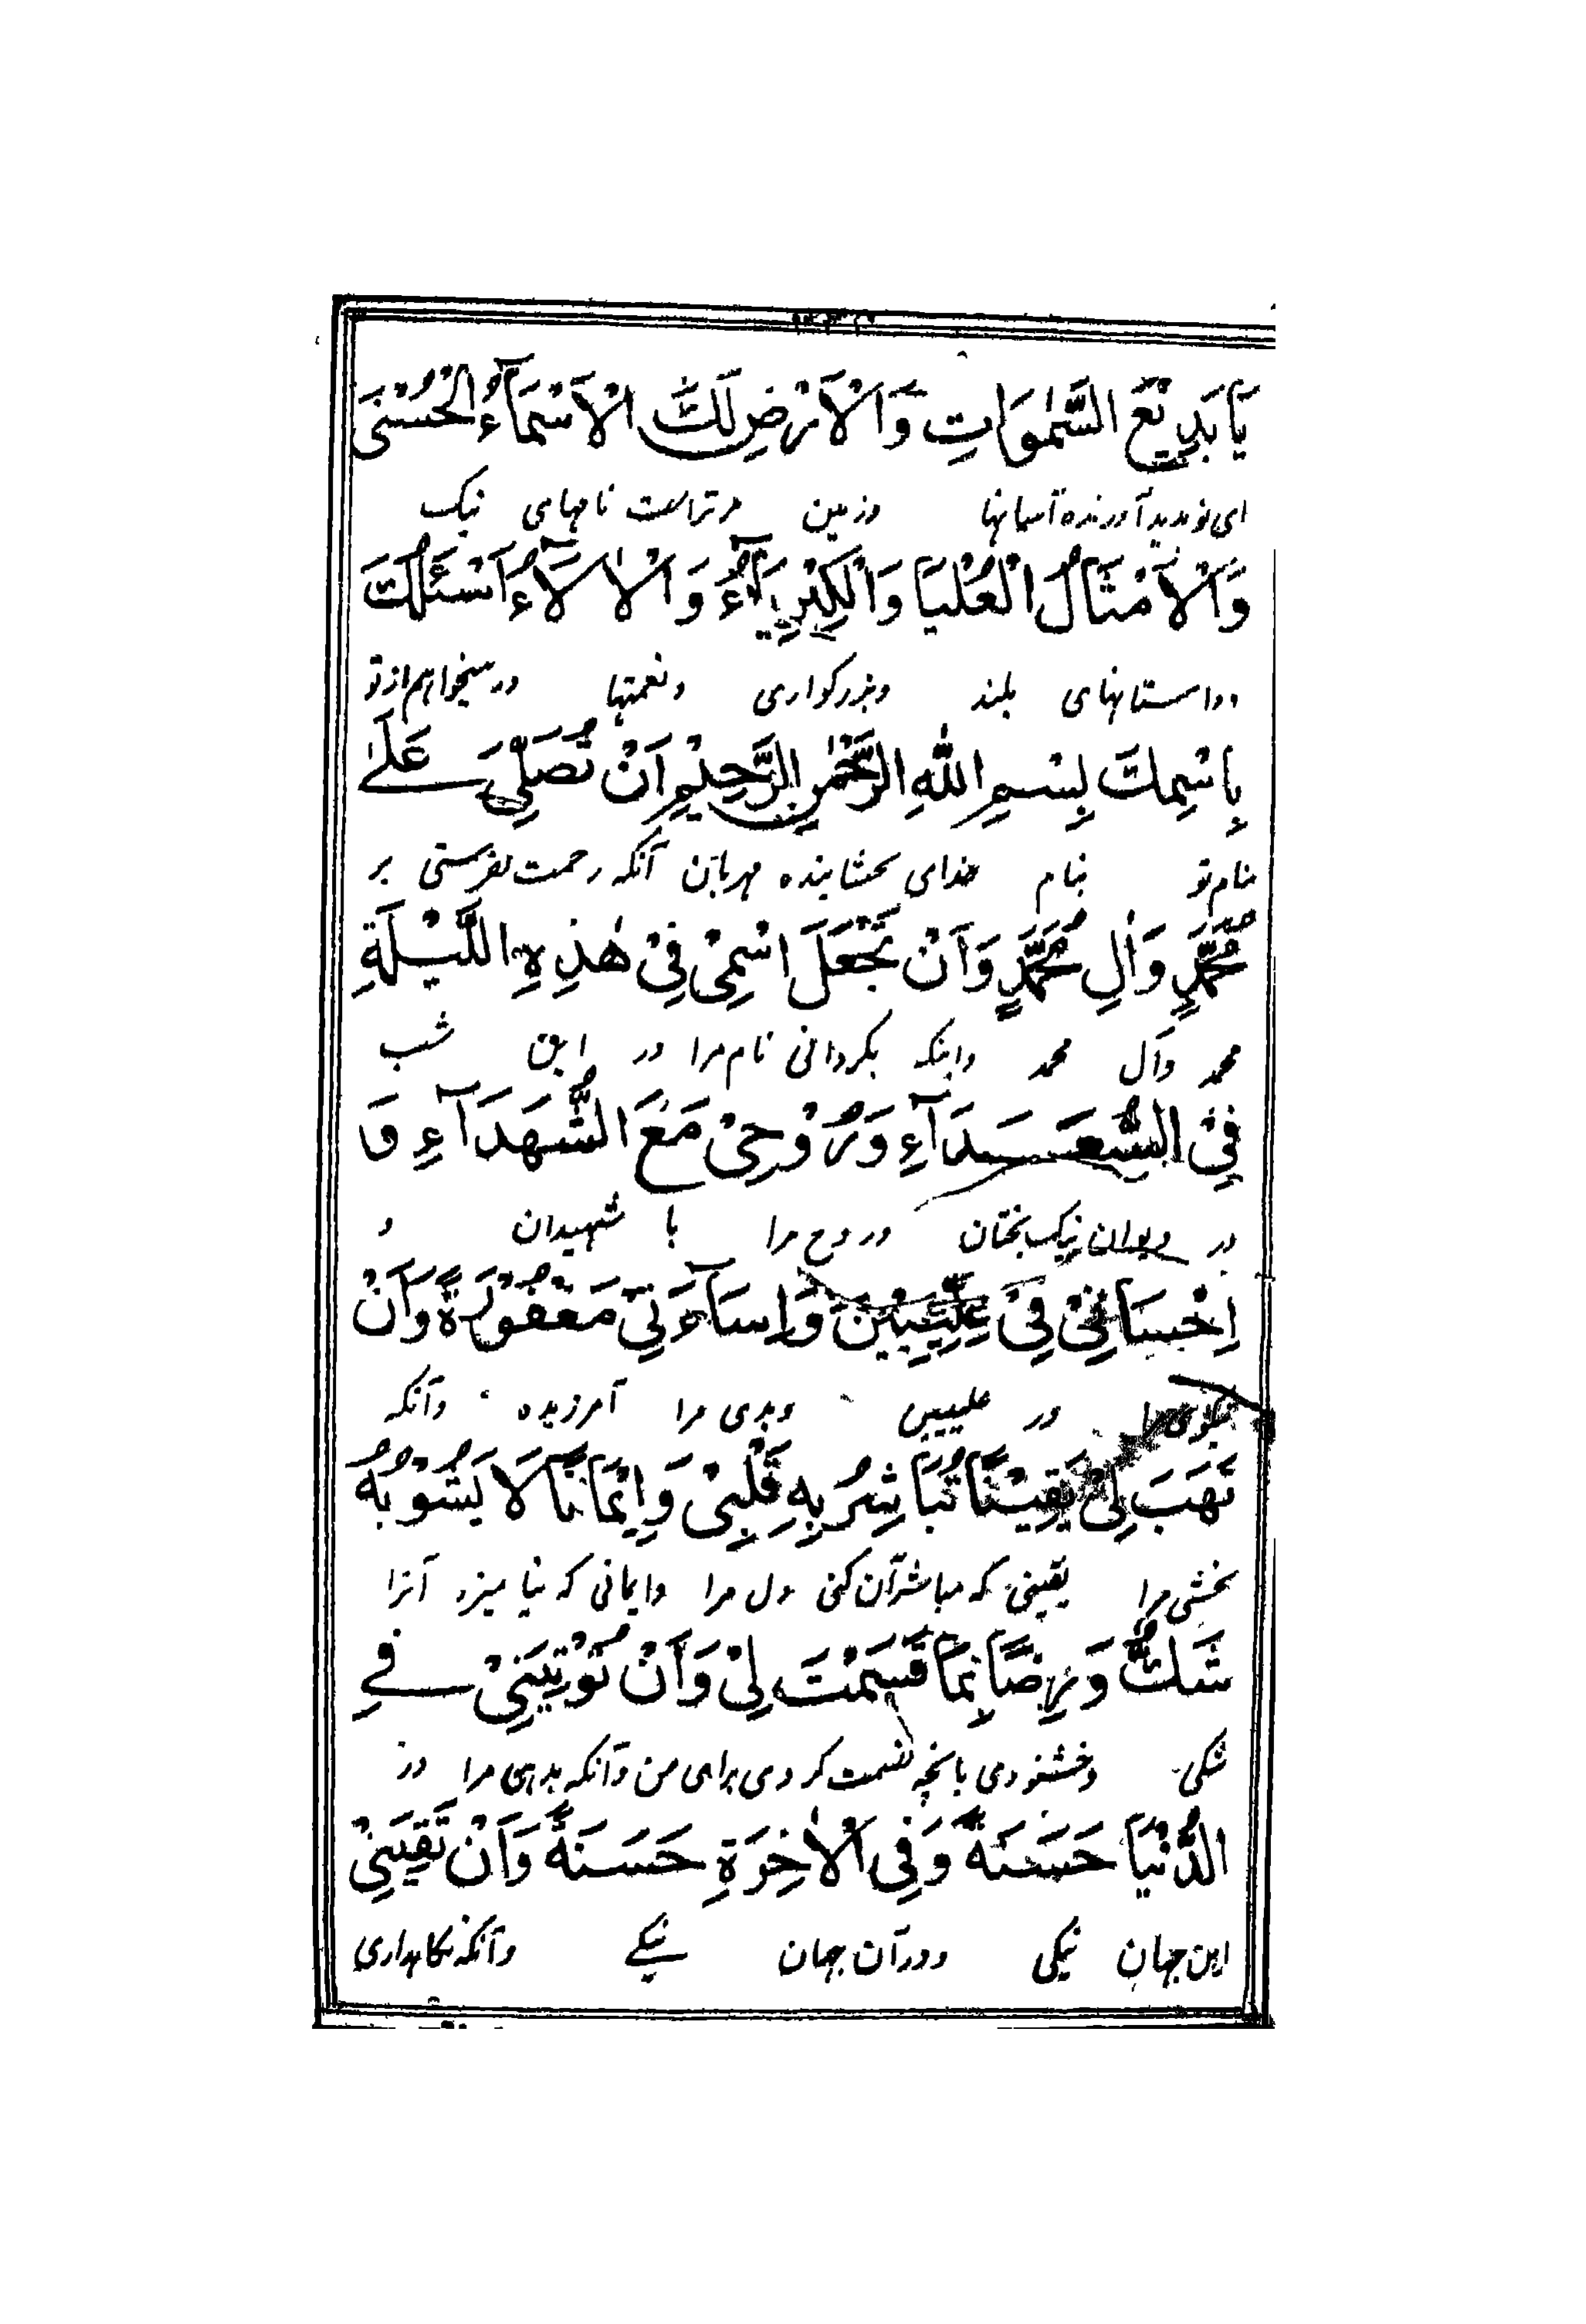 يَا بَدِيْعَ السَّمٰوَاتِ وَالْاَرْضِ لَكَ الْاَسْمَآءُ الْحُسْنٰى
ای نو پدید آورنده آسمانها وزمین مر تراست نامهای نیک
وَالْاَمْثَالُ الْعُلْيَا وَالْكِبْرِيَآءُ وَالْاٰلَآءُ اَسْئَلُكَ
وداستانهای بلند وبزرگواری ونعمتها ودرمیخواهم از تو
بِاسْمِكَ بِسْمِ اللّٰهِ الرَّحْمٰنِ الرَّحِيْمِ اَنْ تُصَلِّيَ عَلٰے
بنام تو بنام خدای بخشاینده مهربان آنکه رحمت بفرستی بر
مُحَمَّدٍ وَاٰلِ مُحَمَّدٍ وَاَنْ تَجْعَلَ اسْمِيْ فِيْ هٰذِهِ اللَّيْلَةِ
محمد وآل محمد واینکه بگردانی نام مرا در این شب
فِي السُّعَدَآءِ وَرُوْحِيْ مَعَ الشُّهَدَآءِ وَ
در دیوان نیک بختان وروح مرا با شهیدان و
اِحْسَانِيْ فِيْ عِلِّيِّيْنَ وَاِسَآءَتِيْ مَغْفُوْرَةً وَاَنْ
نیکوی مرا در علیین وبدی مرا آمرزیده وآنکه
تَهَبَ لِيْ يَقِيْنًا تُبَاشِرُ بِهٖ قَلْبِيْ وَاِيْمَانًا لَا يَشُوْبُهُ
بخشی مرا یقینی که مباشر آن کنی دل مرا وایمانی که نیامیزد آنرا
شَكٌّ وَرِضًا بِمَا قَسَمْتَ لِيْ وَاَنْ تُوْتِيَنِيْ فِے
شکی وخشنودی بانچه قسمت کردی برای من وآنکه بدهی مرا در
الدُّنْيَا حَسَنَةً وَفِي الْاٰخِرَةِ حَسَنَةً وَاَنْ تَقِيَنِيْ
این جهان نیکی ودر آن جهان نیکے وآنکه نگاهداری